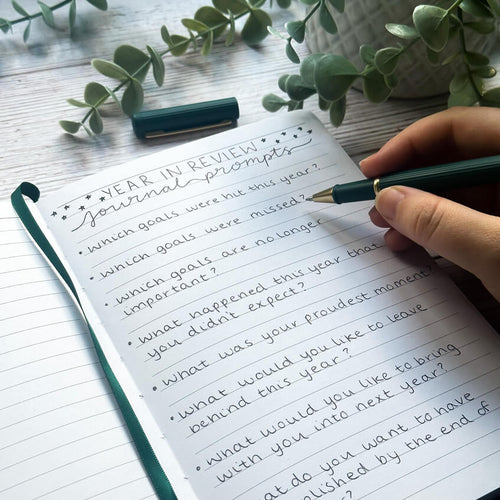 YEAR IN REVIEW
Journal prompts
• which goals were hit this year?
• which goals were missed?
• which goals are no longer
important?
• what happened this year that
you didn't expect?
• what was your proudest moment?
• what would you like to leave
behind this year?
• what would you like to bring
with you into next year?
do you want to have
by the end of